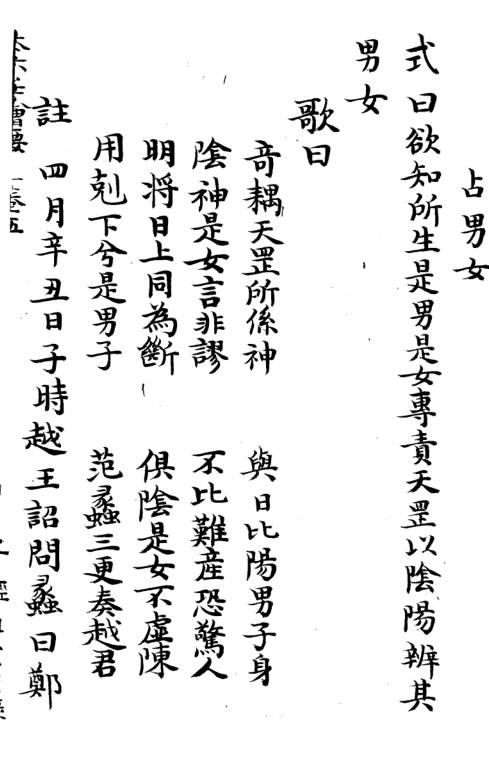 占男女
式曰欲知所生是男是女專責天罡以陰陽辨其
男女
歌曰
奇耦天罡所係神　與日比陽男子身
陰神是女言非謬　不比難産恐驚人
明將日上同為斷　俱陰是女不虛陳
用剋下兮是男子　范蠡三更奏越君
註　四月辛丑日子時越王詔問蠡曰鄭